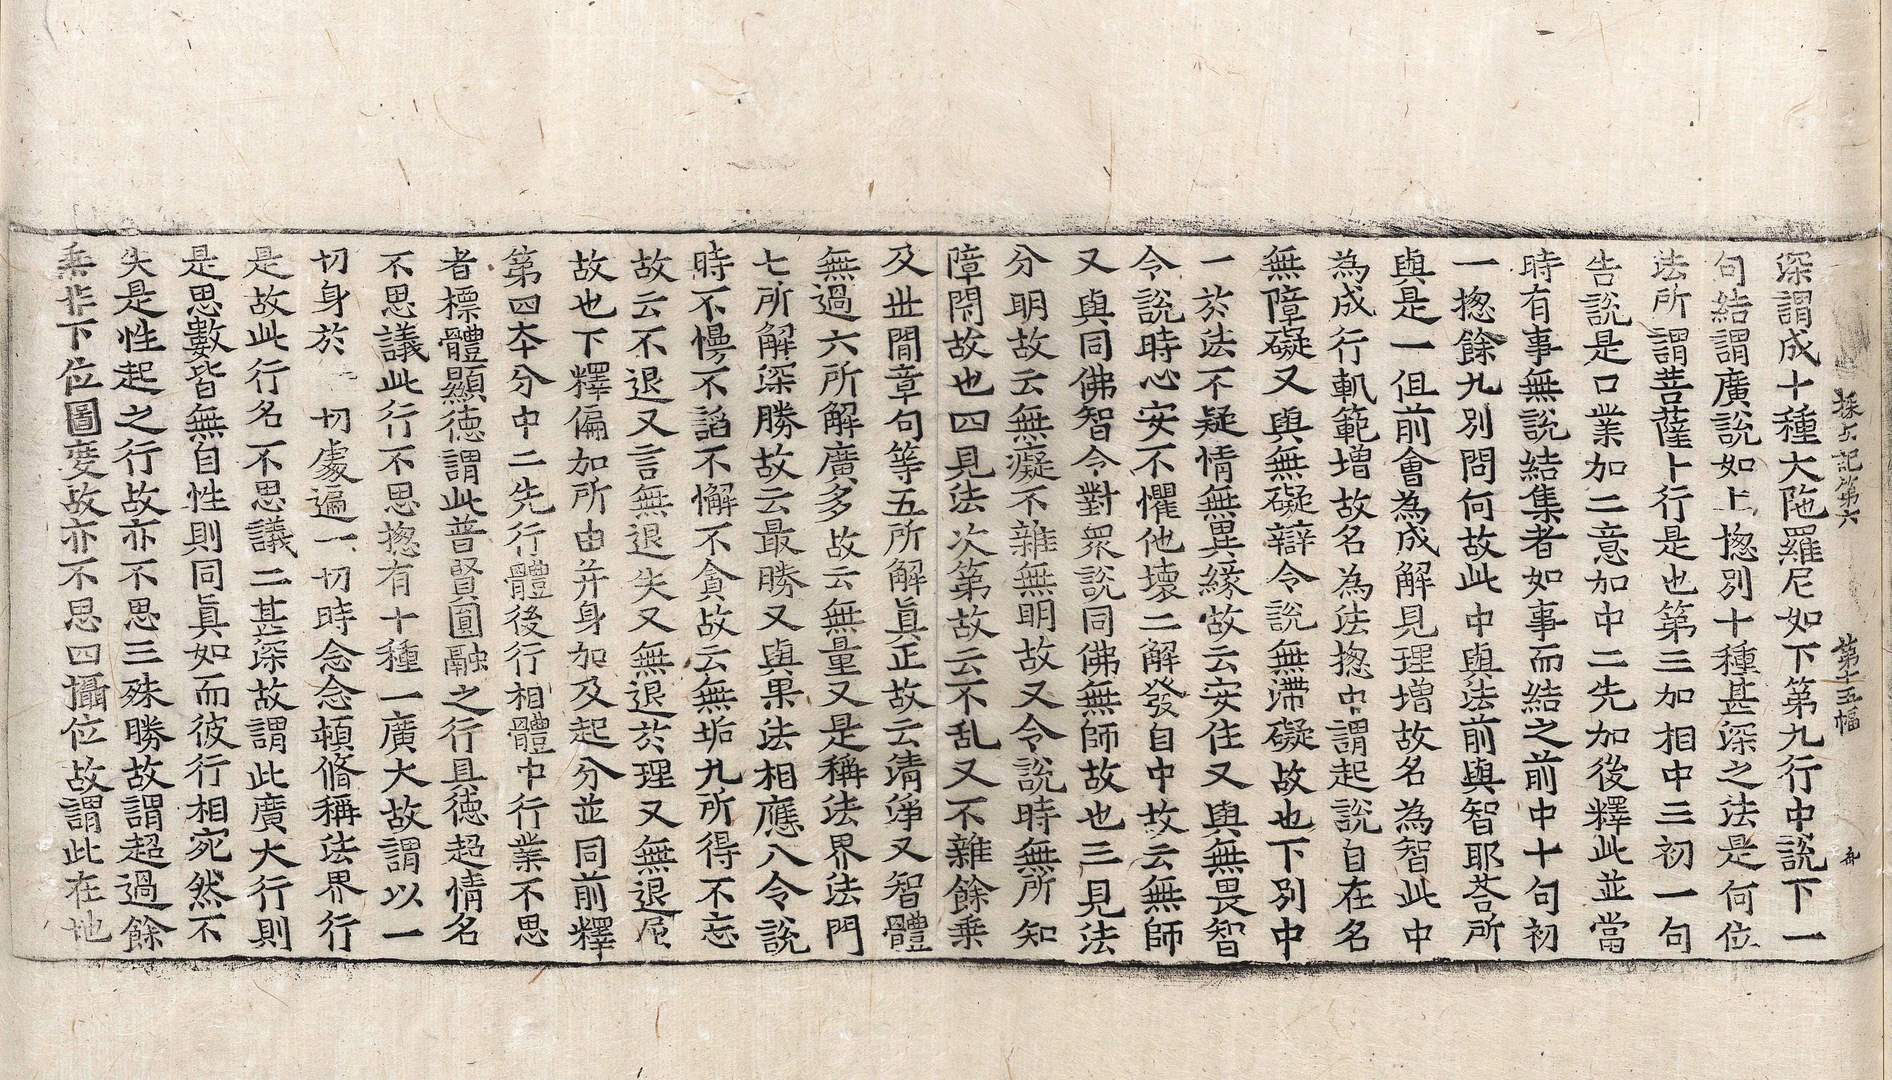 探玄記第六 第十五幅 冉
深謂成十種大陁羅尼如下第九行中說下一
句結謂廣說如上揔別十種甚深之法是何位
法所謂菩薩卜行是也第三加相中三初一句
告說是口業加二意加中二先加後釋此並當
時有事無說結集者如事而結之前中十句初
一揔餘九別問何故此中與法前與智耶荅所
與是一但前會為成解見理增故名為智此中
為成行軌範增故名為法揔中謂起說自在名
無障礙又與無礙辯令說無滯礙故也下別中
一於法不疑情無異緣故云安住又與無畏智
令說時心安不懼他壞二解發自中故云無師
又與同佛智令對衆說同佛無師故也三見法
分明故云無癡不雜無明故又令說時無所知
障閡故也四見法次第故云不乱又不雜餘乗
及世閒章句等五所解眞正故云清淨又智體
無過六所解廣多故云無量又是稱法界法門
七所解深勝故云最勝又與果法相應八令說
時不慢不諂不懈不貪故云無垢九所得不忘
故云不退又言無退失又無退於理又無退屈
故也下釋偏加所由并身加及起分並同前釋
第四本分中二先行體後行相體中行業不思
者標體顯德謂此普賢圓融之行具德超情名
不思議此行不思揔有十種一廣大故謂以一
切身於一切處遍一切時念念頓脩稱法界行
是故此行名不思議二甚深故謂此廣大行則
是思數皆無自性則同眞如而彼行相宛然不
失是性起之行故亦不思三殊勝故謂超過餘
乗非下位圖度故亦不思四攝位故謂此在地